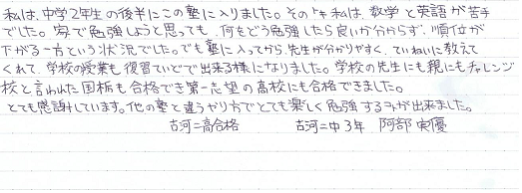 私は、中学2年生の後半にこの塾に入りました。その時私は、数学と英語が苦手
でした。家で勉強しようと思っても、何をどう勉強したら良いか分からず、順位が
下がる一方という状況でした。でも塾に入ってから、先生が分かりやすく、ていねいに教えて
くれて、学校の授業も復習ていどで出来る様になりました。学校の先生にも親にもチャレンジ
校と言われた国栃も合格でき第一志望の高校にも合格できました。
とても感謝しています。他の塾と違うやり方でとても楽しく勉強する事が出来ました。
古河二高合格 古河二中3年 阿部 実優